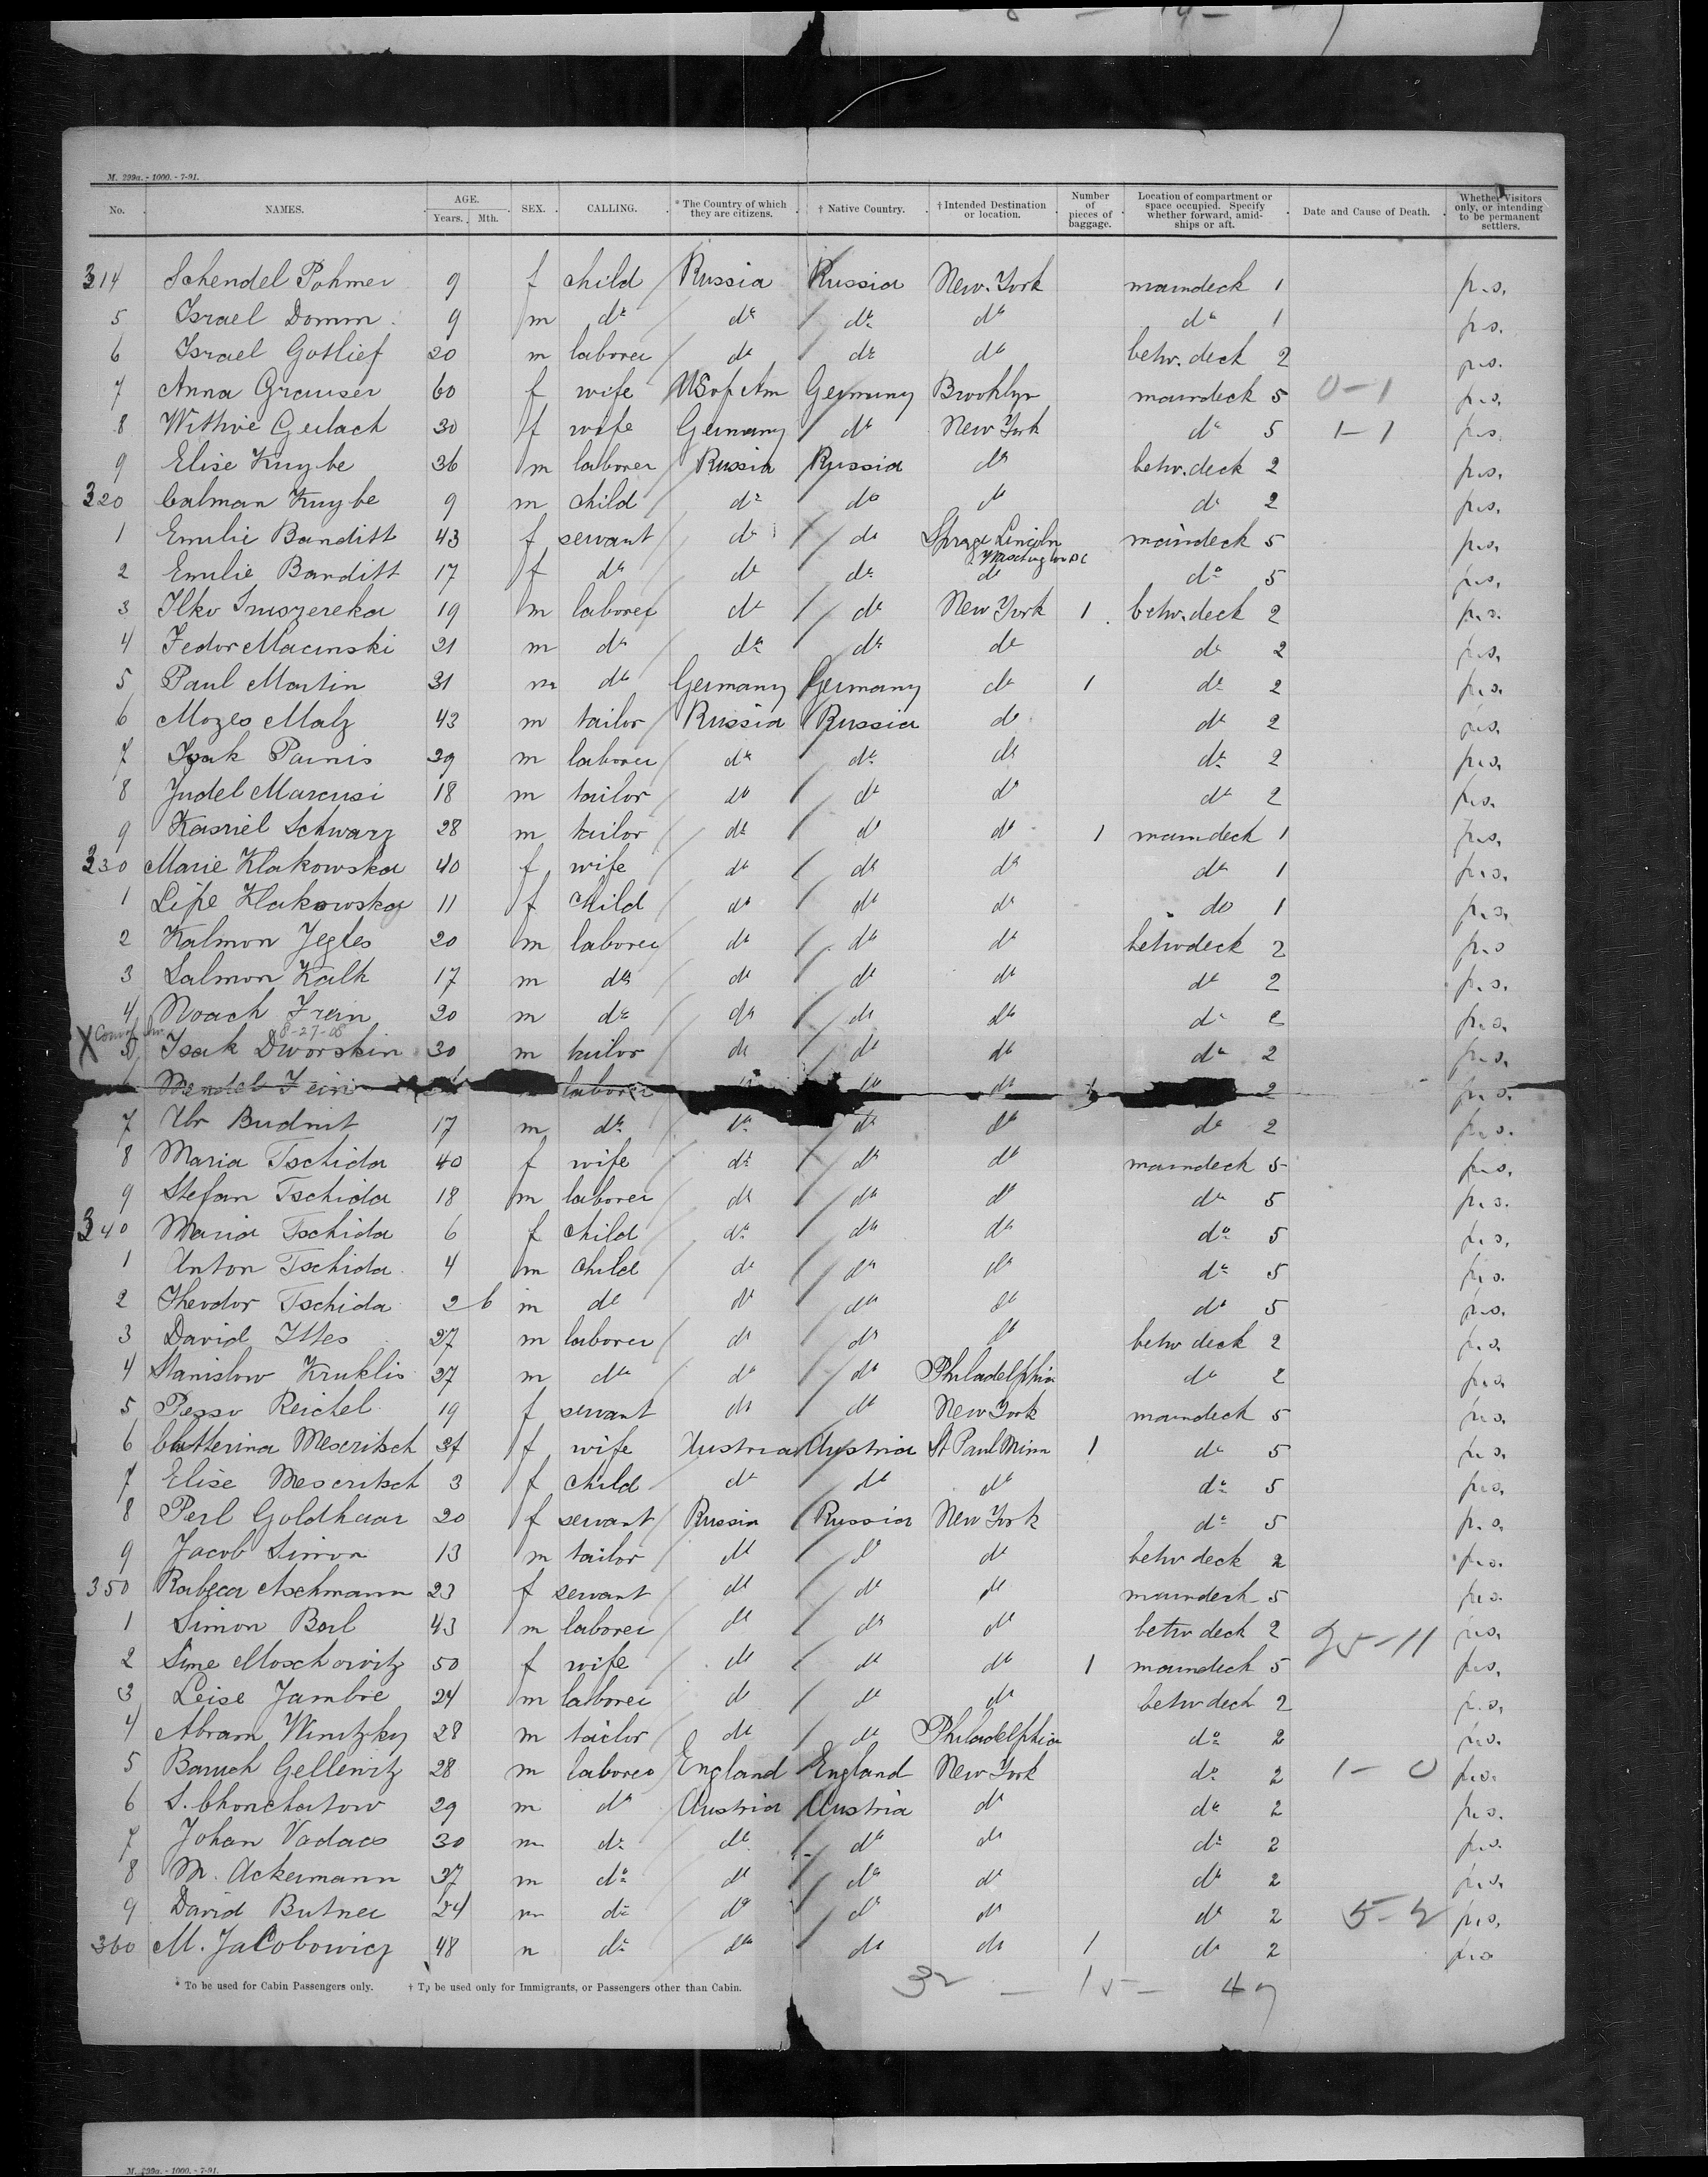 M. 299a. - 1000. - 7-91.
No. NAMES. AGE. Years. Mth. SEX. CALLING. * The Country of which they are citizens. † Native Country. † Intended Destination or location. Number of pieces of baggage. Location of compartment or space occupied. Specify whether forward, amidships or aft. Date and Cause of Death. Whether Visitors only, or intending to be permanent settlers.
314 Schendel Pohmer 9 f child Russia Russia New. York maindeck 1 p.s.
5 Israel Domm 9 m do do do do do 1 p.s.
6 Israel Gotlief 20 m laborer do do do betw. deck 2 p.s.
7 Anna Grauser 60 f wife US of Am Germany Brooklyn maindeck 5 0-1 p.s.
8 Wittwe Gerlach 30 f wife Germany do New York do 5 1-1 p.s.
9 Elise Kuybe 36 m laborer Russia Russia do betw. deck 2 p.s.
320 Calman Kuybe 9 m child do do do do 2 p.s.
1 Emilie Banditt 43 f servant do do Sprage Lincoln Washington DC maindeck 5 p.s.
2 Emilie Banditt 17 f do do do do do 5 p.s.
3 Ilko 19 m laborer do do New York 1 betw. deck 2 p.s.
4 Fedor Macinski 21 m do do do do do 2 p.s.
5 Paul Martin 31 m do Germany Germany do 1 do 2 p.s.
6 Mozes Malz 43 m tailor Russia Russia do do 2 p.s.
7 Isak Painis 39 m laborer do do do do 2 p.s.
8 Judel Marcusi 18 m tailor do do do do 2 p.s.
9 Kasriel Schwarz 28 m tailor do do do 1 maindeck 1 p.s.
330 Marie Klakowska 40 f wife do do do do 1 p.s.
1 Lipe Klakowska 11 f child do do do do 1 p.s.
2 Kalmon Jegles 20 m laborer do do do betwdeck 2 p.s
3 Salmon Kalk 17 m do do do do do 2 p.s.
4 Noach Frein 20 m do do do do do 2 p.s.
X 8-27-08
5 Isak Dworskin 30 m tailor do do do do 2 p.s.
Mendel Fein laborer do do 2 p.s.
7 Abr Budnit 17 m do do do do do 2 p.s.
8 Maria Tschida 40 f wife do do do maindeck 5 p.s.
9 Stefan Tschida 18 m laborer do do do do 5 p.s.
340 Maria Tschida 6 f child do do do do 5 p.s.
1 Anton Tschida 4 m child do do do do 5 p.s.
2 Theodor Tschida 2 6 m do do do do do 5 p.s.
3 David Ittes 27 m laborer do do do betw deck 2 p.s.
4 Stanislow Kruklis 27 m do do do Philadelphia do 2 p.s.
5 Pesso Reichel 19 f servant do do New York maindeck 5 p.s.
6 Catterina Mescritsch f wife Austria Austria St Paul Minn 1 do 5 p.s.
7 Elise Mescritsch 3 f child do do do do 5 p.s.
8 Perl Goldhaar 20 f servant Russia Russia New York do 5 p.s.
9 Jacob Simon 13 m tailor do do do betw deck 2 p.s.
350 Rabeca Aschmann 23 f servant do do do maindeck 5 p.s.
1 Simon Barl 43 m laborer do do do betw deck 2 p.s.
2 Sime Moschowitz 50 f wife do do do 1 maindeck 5 p.s.
3 Leise Jambre 24 m laborer do do do betw deck 2 p.s.
4 Abram Winitzky 28 m tailor do do Philadelphia do 2 p.s.
5 Baruch Gellewitz 28 m laborer England England New York do 2 1-0 p.s.
6 S. Chonchatow 29 m do Austria Austria do do 2 p.s.
7 Johan Vadacs 30 m do do do do do 2 p.s.
8 M. Ackermann 37 m do do do do do 2 p.s.
9 David Butner 24 m do do do do do 2 5-2 p.s.
360 M. Jacobowicz 48 m do do do do 1 do 2 p.s
* To be used for Cabin Passengers only. † To be used only for Immigrants, or Passengers other than Cabin.
32 - 15 - 47
M. 299a. - 1000. - 7-91.